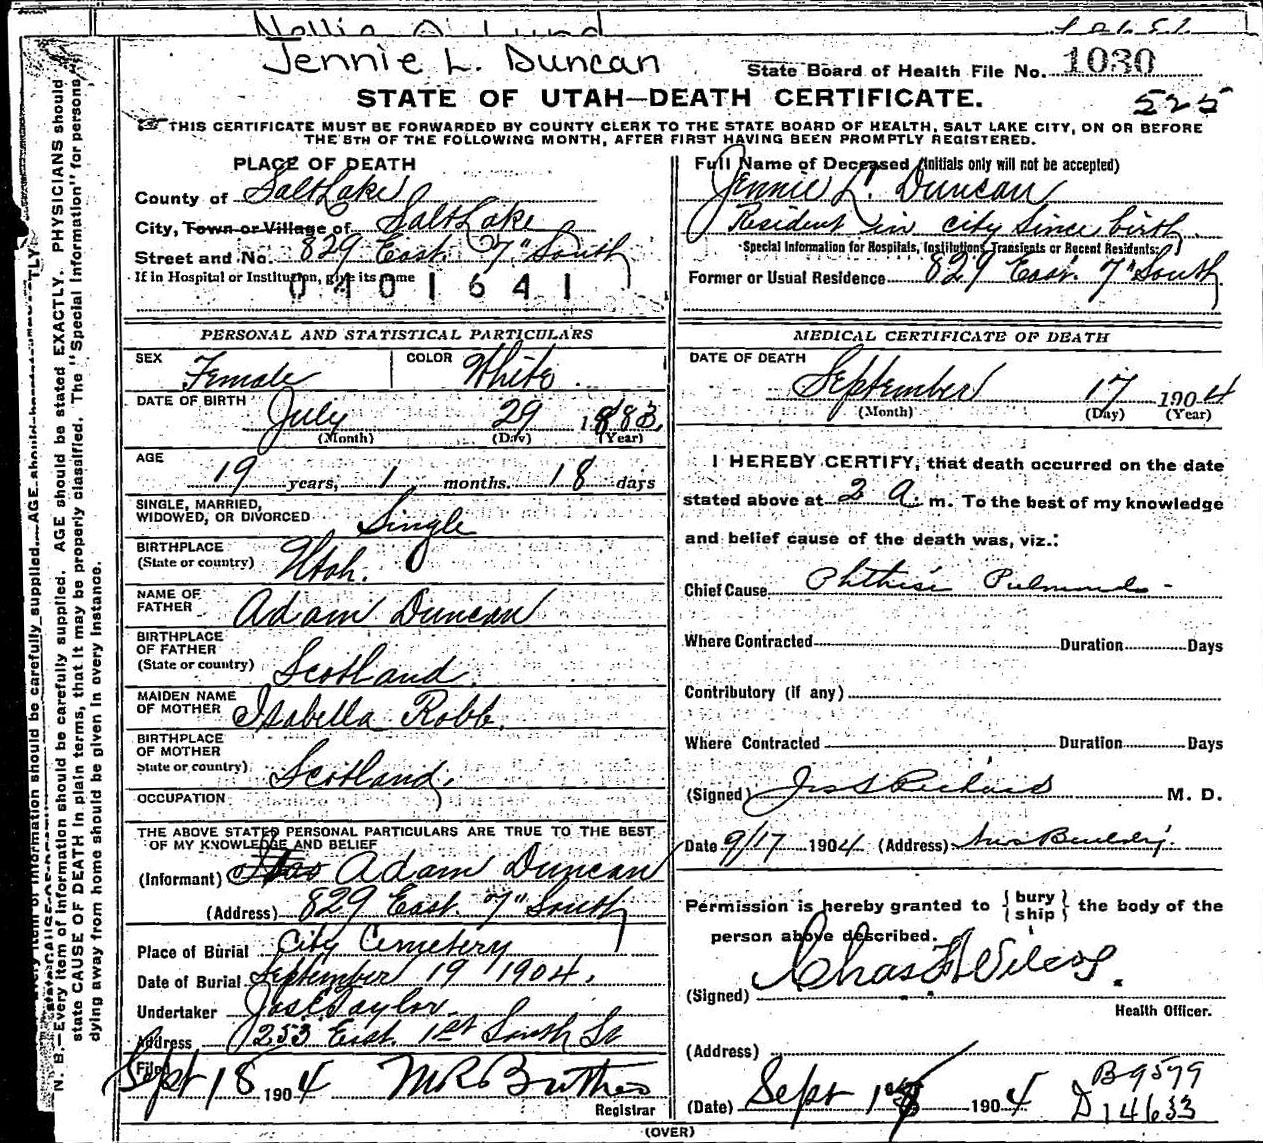 Nellie A. Lund
Jennie L. Duncan
State Board of Health File No. 1030
525
STATE OF UTAH—DEATH CERTIFICATE.
☞ THIS CERTIFICATE MUST BE FORWARDED BY COUNTY CLERK TO THE STATE BOARD OF HEALTH, SALT LAKE CITY, ON OR BEFORE
THE 5TH OF THE FOLLOWING MONTH, AFTER FIRST HAVING BEEN PROMPTLY REGISTERED.
PLACE OF DEATH
County of Salt Lake
City, Town or Village of Salt Lake
Street and No. 829 East 7" South
If in Hospital or Institution, give its name
0401641
Full Name of Deceased (Initials only will not be accepted)
Jennie L. Duncan
Resident in city since birth
Special Information for Hospitals, Institutions, Transients or Recent Residents:
Former or Usual Residence 829 East 7" South
PERSONAL AND STATISTICAL PARTICULARS
SEX Female COLOR White
DATE OF BIRTH July 29 1883
(Month) (Day) (Year)
AGE 19 years, 1 months. 18 days
SINGLE, MARRIED,
WIDOWED, OR DIVORCED Single
BIRTHPLACE
(State or country) Utah.
NAME OF
FATHER Adam Duncan
BIRTHPLACE
OF FATHER
(State or country) Scotland
MAIDEN NAME
OF MOTHER Isabella Robb.
BIRTHPLACE
OF MOTHER
State or country) Scotland.
OCCUPATION
THE ABOVE STATED PERSONAL PARTICULARS ARE TRUE TO THE BEST
OF MY KNOWLEDGE AND BELIEF
(Informant) Adam Duncan
(Address) 829 East 7" South
Place of Burial City Cemetery
Date of Burial September 19 1904.
Undertaker Jos E Taylor
Address 253 East 1st South St
Filed Sept 18 1904
Registrar
MEDICAL CERTIFICATE OF DEATH
DATE OF DEATH
September 17 1904
(Month) (Day) (Year)
I HEREBY CERTIFY, that death occurred on the date
stated above at 2 A. m. To the best of my knowledge
and belief cause of the death was, viz.:
Chief Cause Phthisis
Where Contracted Duration Days
Contributory (if any)
Where Contracted Duration Days
(Signed) M. D.
Date 9/17 1904 (Address)
Permission is hereby granted to {bury
ship} the body of the
person above described.
(Signed) Chas F Wilcox.
Health Officer.
(Address)
(Date) Sept 1904
B 9579
D 14633
(OVER)
N. B.—Every item of information should be carefully supplied. AGE should be stated EXACTLY. PHYSICIANS should
state CAUSE OF DEATH in plain terms, that it may be properly classified. The "Special Information" for persons
dying away from home should be given in every instance.